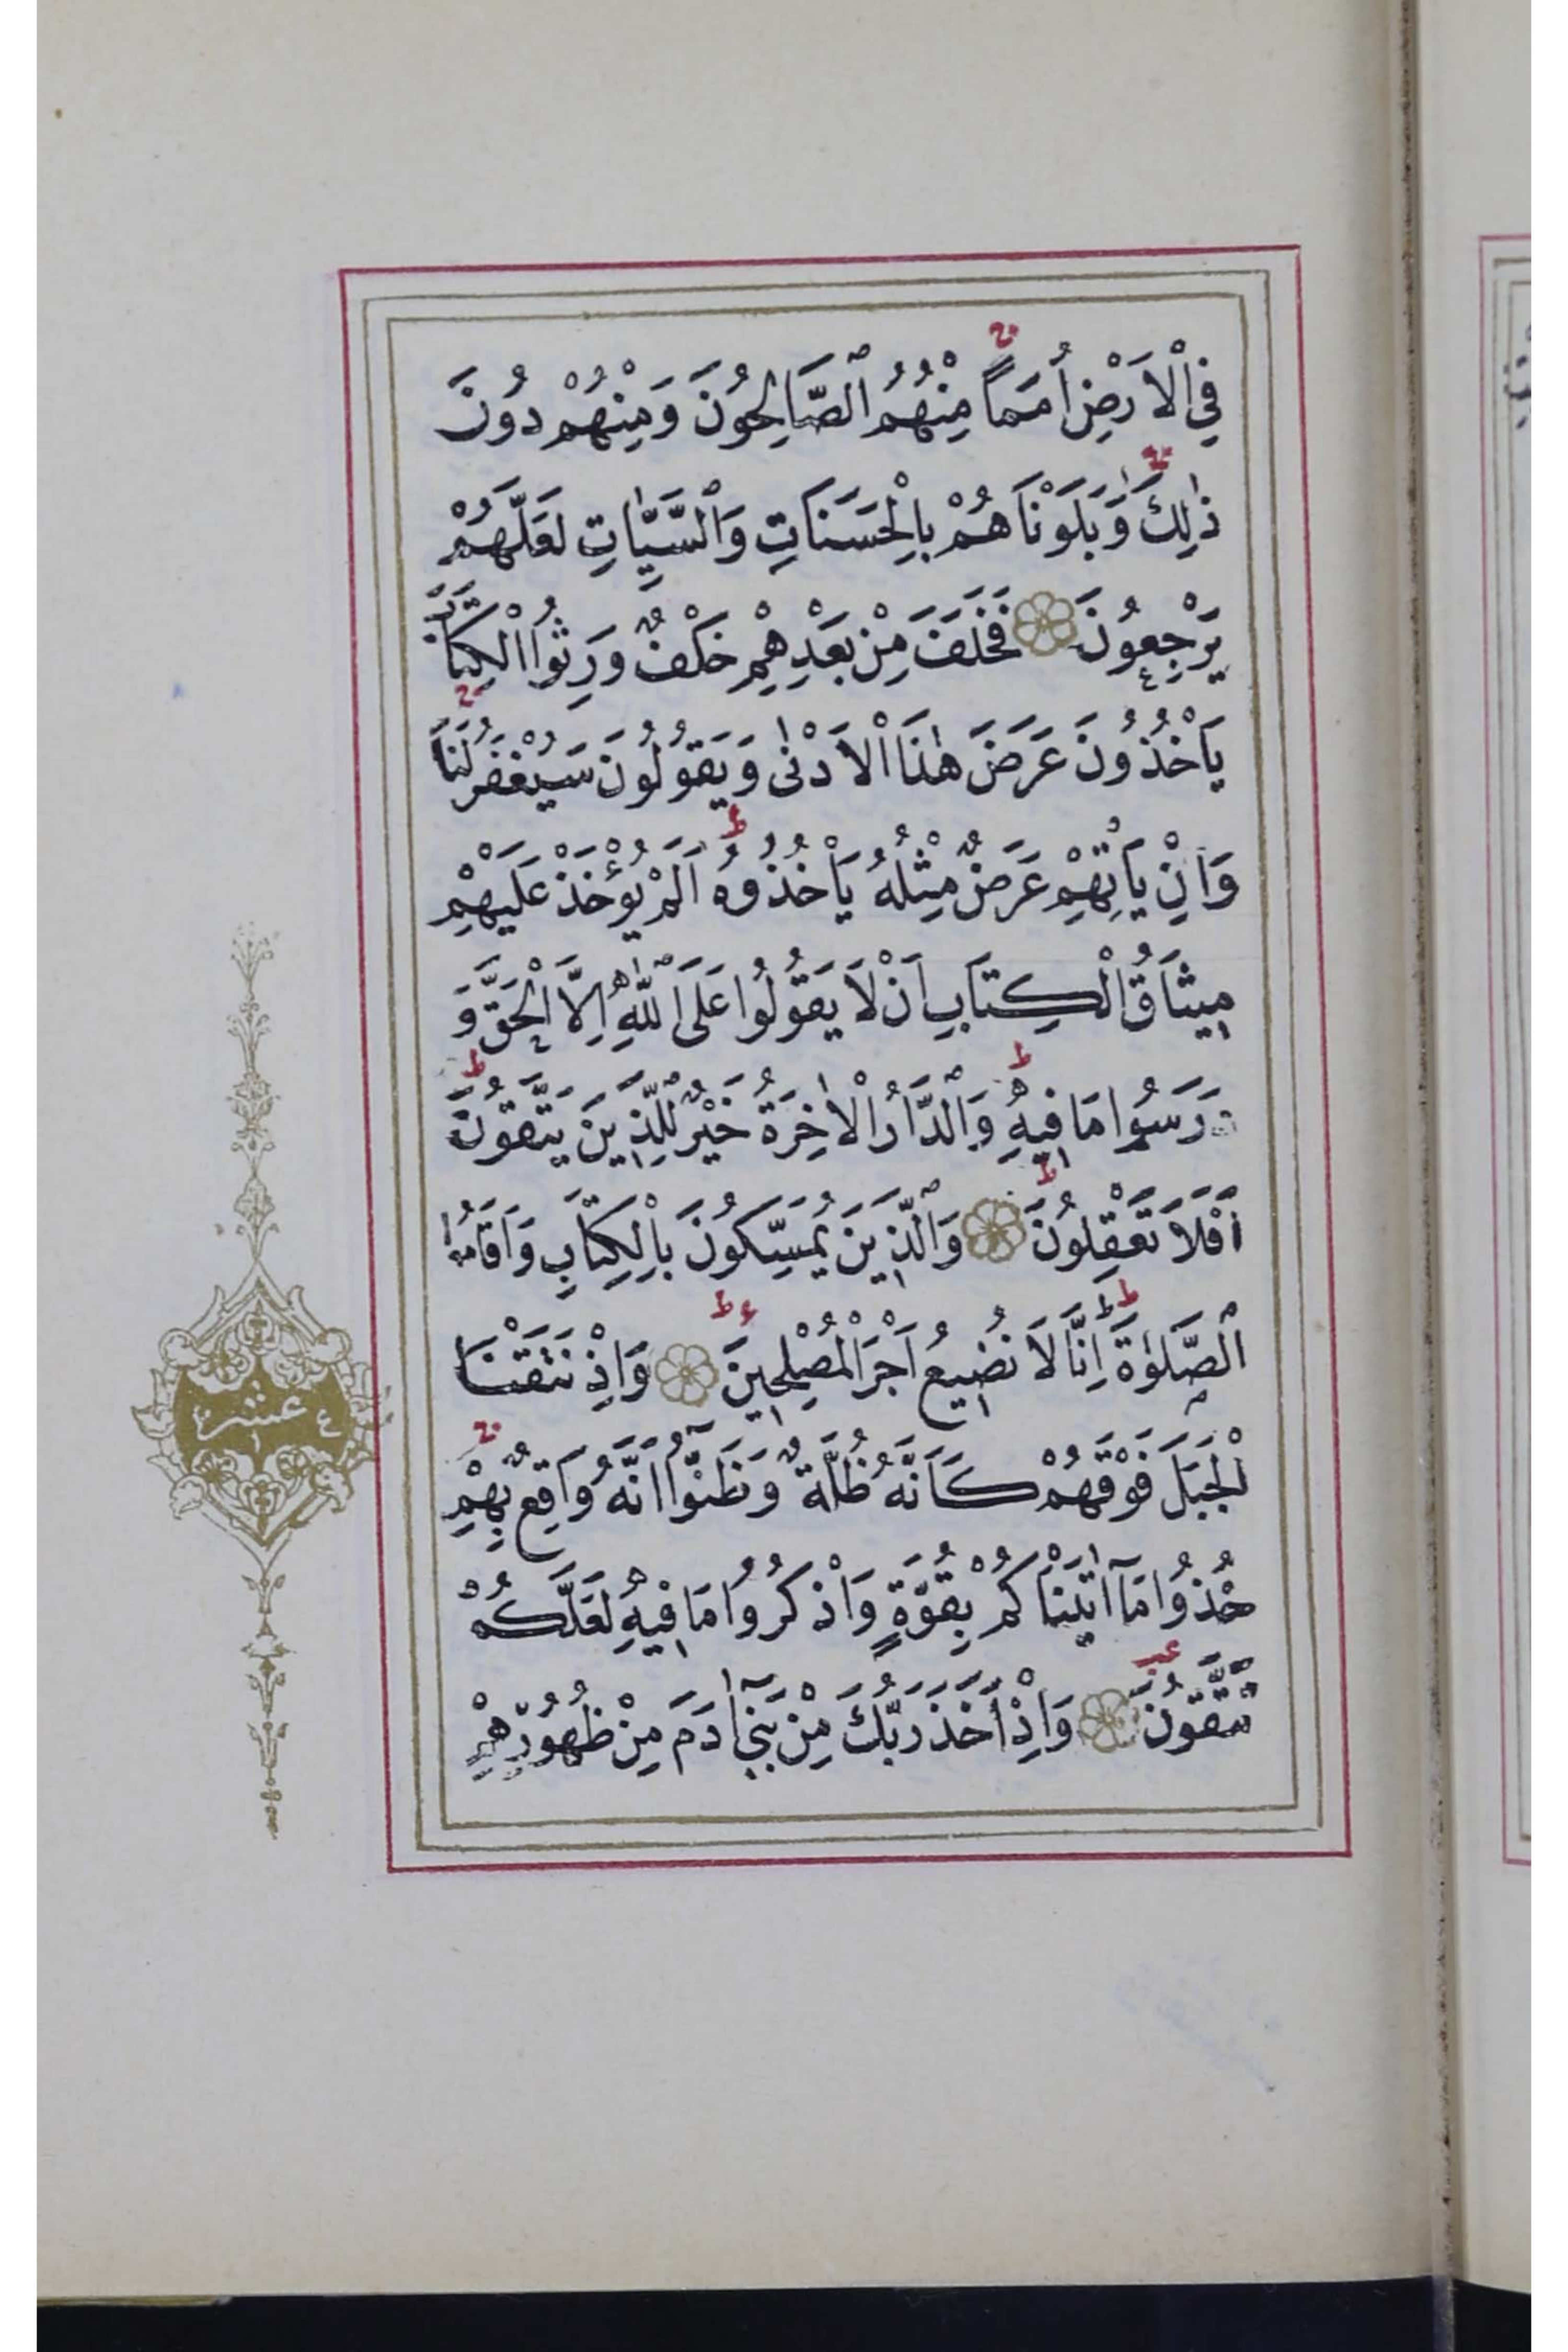 فِي الْاَرْضِ اُمَمًا مِنْهُمُ الصَّالِحُونَ وَمِنْهُمْ دُونَ
ذٰلِكَ وَبَلَوْنَاهُمْ بِالْحَسَنَاتِ وَالسَّيِّاٰتِ لَعَلَّهُمْ
يَرْجِعُونَ فَخَلَفَ مِنْ بَعْدِهِمْ خَلْفٌ وَرِثُوا الْكِتَابَ
يَأْخُذُونَ عَرَضَ هٰذَا الْاَدْنٰى وَيَقُولُونَ سَيُغْفَرُ لَنَا
وَاِنْ يَأْتِهِمْ عَرَضٌ مِثْلُهُ يَأْخُذُوهُ اَلَمْ يُؤْخَذْ عَلَيْهِمْ
مِيثَاقُ الْكِتَابِ اَنْ لَا يَقُولُوا عَلَى اللّٰهِ اِلَّا الْحَقَّ وَ
دَرَسُوا مَا فِيهِ وَالدَّارُ الْاٰخِرَةُ خَيْرٌ لِلَّذِينَ يَتَّقُونَ
اَفَلَا تَعْقِلُونَ وَالَّذِينَ يُمَسِّكُونَ بِالْكِتَابِ وَاَقَامُوا
الصَّلٰوةَ اِنَّا لَا نُضِيعُ اَجْرَ الْمُصْلِحِينَ وَاِذْ نَتَقْنَا
الْجَبَلَ فَوْقَهُمْ كَاَنَّهُ ظُلَّةٌ وَظَنُّوا اَنَّهُ وَاقِعٌ بِهِمْ
خُذُوا مَا اٰتَيْنَاكُمْ بِقُوَّةٍ وَاذْكُرُوا مَا فِيهِ لَعَلَّكُمْ
تَتَّقُونَ وَاِذْ اَخَذَ رَبُّكَ مِنْ بَنِي اٰدَمَ مِنْ ظُهُورِهِمْ
عشر